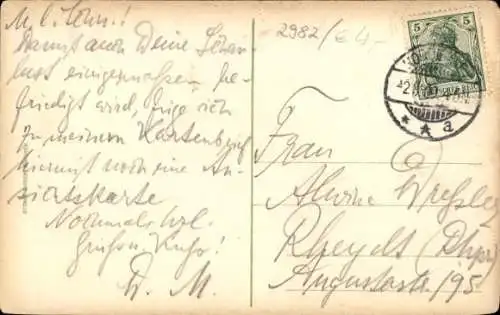 M. l. Sohn!!
Damit auch Deine Schau-
lust einigermaßen be-
friedigt wird, füge ich
zu meinem Kartenbrief
hiermit noch eine An-
sichtskarte
Nochmals hzl.
Gruß u. Kuß!
D. M.
2982/€ 4,-
5 5
a
Frau
Alwine
Rheydt (Rhpr)
Augustastr. 95